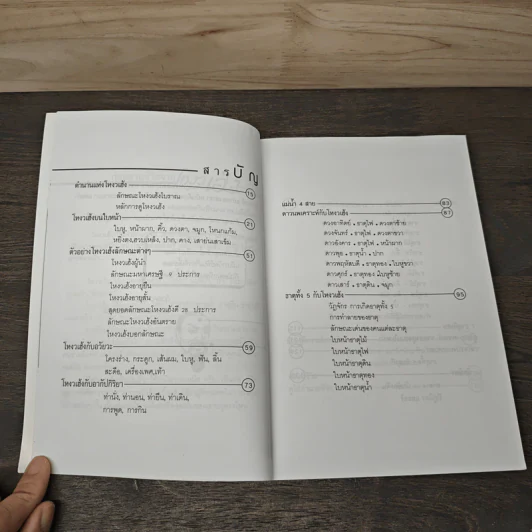 สารบัญ
ตำนานแห่งโหงวเฮ้ง 15
ลักษณะโหงวเฮ้งโบราณ
หลักการดูโหงวเฮ้ง
โหงวเฮ้งบนใบหน้า 21
ใบหู, หน้าผาก, คิ้ว, ดวงตา, จมูก, โหนกแก้ม,
ปาก, คาง,
ตัวอย่างโหงวเฮ้งลักษณะต่างๆ 51
โหงวเฮ้งผู้นำ
ลักษณะมหาเศรษฐี 9 ประการ
โหงวเฮ้งอายุยืน
โหงวเฮ้งอายุสั้น
สุดยอดลักษณะโหงวเฮ้งดี 28 ประการ
ลักษณะโหงวเฮ้งอันตราย
โหงวเฮ้งบอกลักษณะ
โหงวเฮ้งกับอวัยวะ 59
โครงร่าง, กระดูก, เส้นผม, ใบหู, ฟัน, ลิ้น
สะดือ, เครื่องเพศ, เท้า
โหงวเฮ้งกับอากัปกิริยา 73
ท่านั่ง, ท่านอน, ท่ายืน, ท่าเดิน,
การพูด, การกิน
แม่น้ำ 4 สาย 83
ดาวนพเคราะห์กับโหงวเฮ้ง 87
ดวงอาทิตย์ • ธาตุไฟ • ดวงตาซ้าย
ดวงจันทร์ • ธาตุไฟ • ดวงตาขวา
ดาวอังคาร • ธาตุไฟ • หน้าผาก
ดาวพุธ • ธาตุน้ำ • ปาก
ดาวพฤหัสบดี • ธาตุทอง • ใบหูขวา
ดาวศุกร์ • ธาตุทอง • ใบหูซ้าย
ดาวเสาร์ • ธาตุดิน • จมูก
ธาตุทั้ง 5 กับโหงวเฮ้ง 95
วัฏจักร การเกิดธาตุทั้ง 5
การทำลายของธาตุ
ลักษณะเด่นของคนแต่ละธาตุ
ใบหน้าธาตุไม้
ใบหน้าธาตุไฟ
ใบหน้าธาตุดิน
ใบหน้าธาตุทอง
ใบหน้าธาตุน้ำ